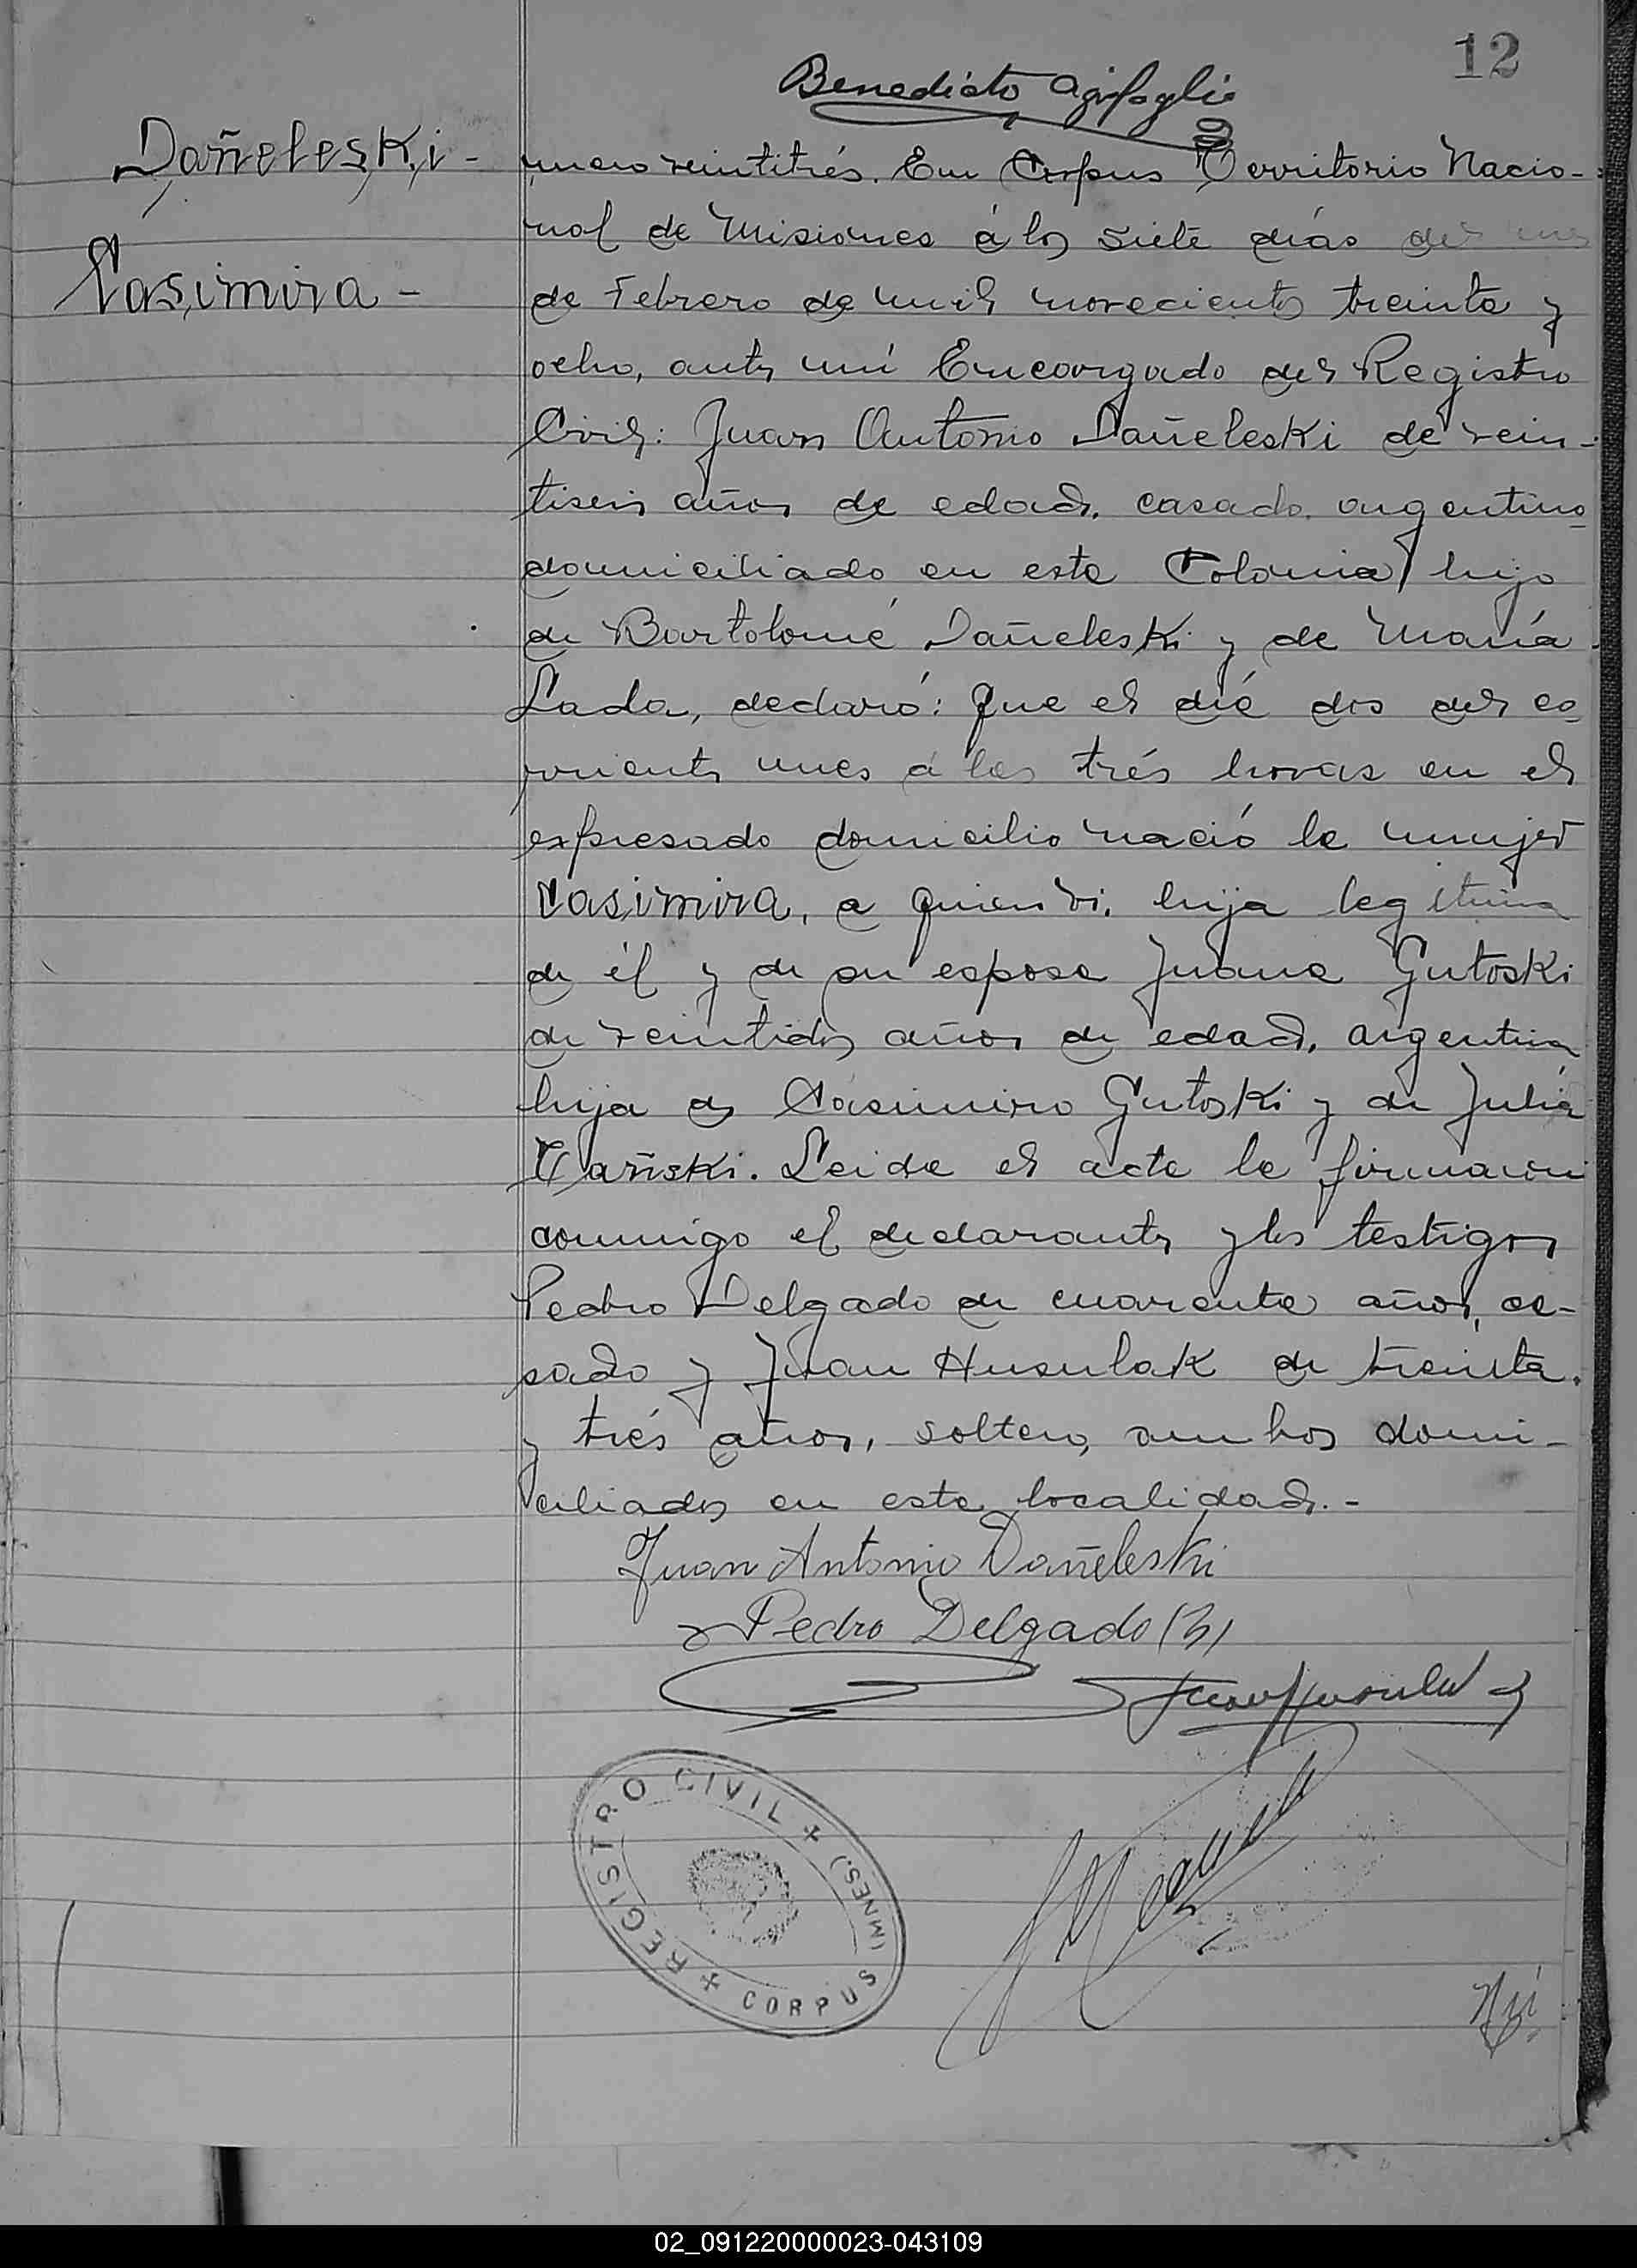 12
Benedicto
Dañeleski -
Casimira -
mero veintitrés. En Corpus Territorio Nacio-
nal de Misiones á los siete días del mes
de Febrero de mil novecientos treinta y
ocho, ante mí Encargado del Registro
Civil: Juan Antonio Dañeleski de vein-
tiseis años de edad, casado, argentino
domiciliado en esta Colonia, hijo
de Bartolomé Dañeleski y de María
Lada, declaró: Que el día dos del co
rriente mes á las trés horas en el
expresado domicilio nació la mujer
Casimira, a quien vi, hija legítima
de él y de su esposa Juana Gutoski
de veintidos años de edad, argentina
hija de Casimiro Gutoski y de Julia
Leida el acta la firmaron
conmigo el declarante y los testigos
Pedro Delgado de cuarenta años, ca-
sado y Juan Husulak de treinta
y trés años, soltero, ambos domi-
ciliados en esta localidad.-
Juan Antonio Dañeleski
Pedro Delgado (h)
Juan Husulak
REGISTRO CIVIL
(MNES.)
CORPUS
02_091220000023-043109